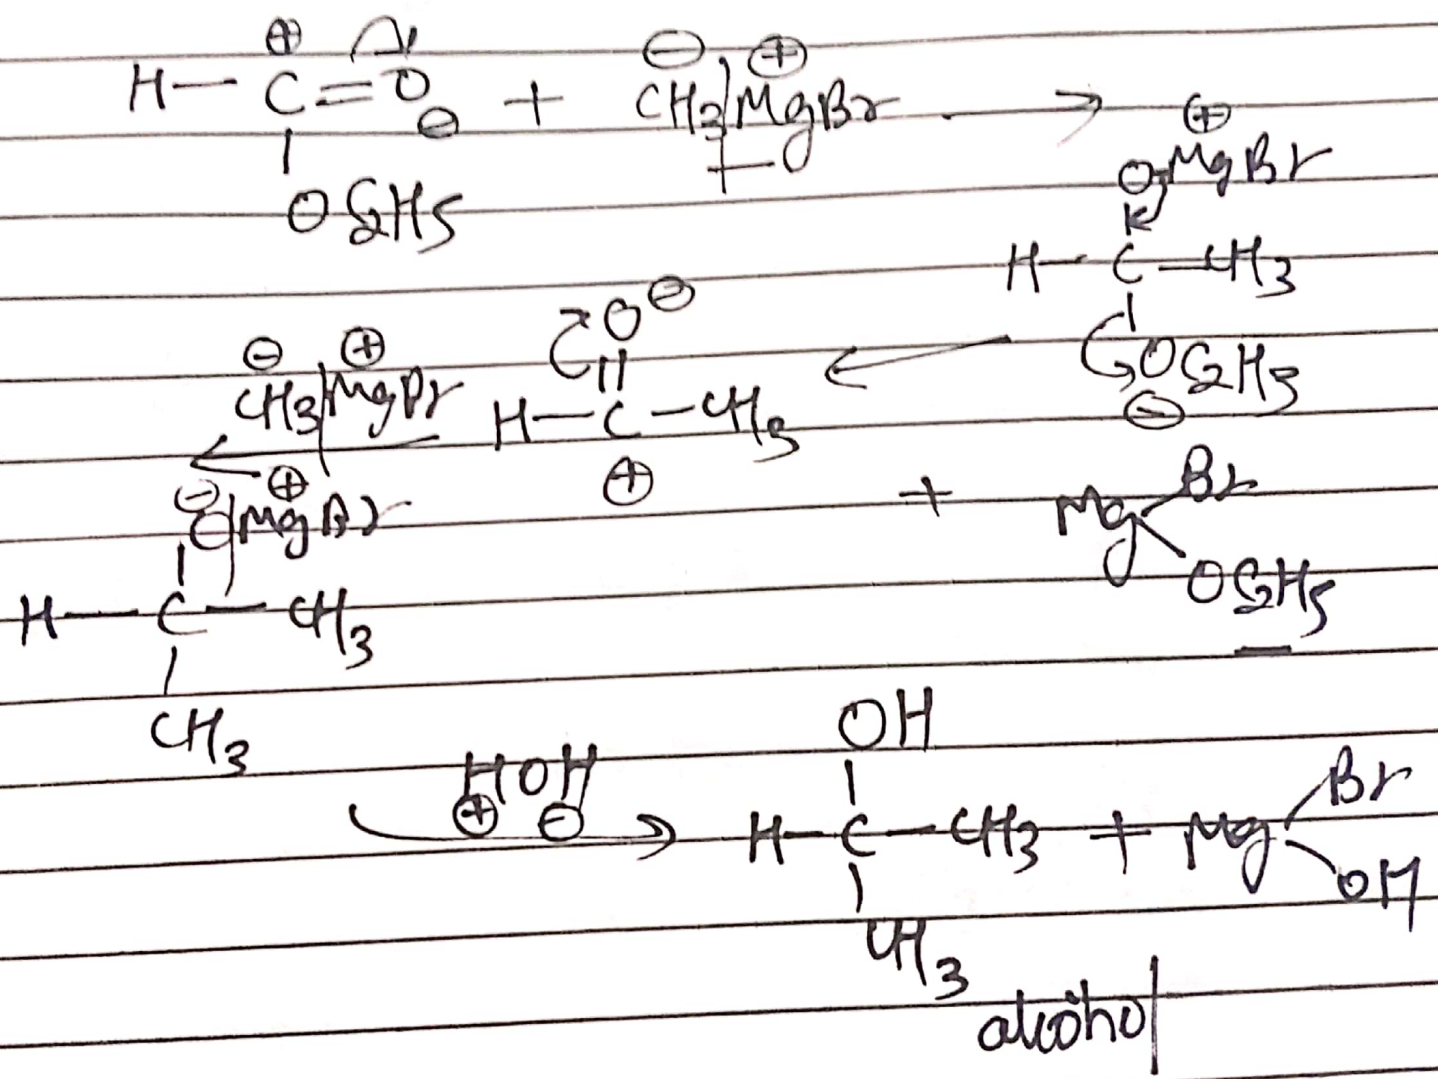 ⊕
H—C=O + CH3|MgBr →
⊖ ⊖ ⊕
|
OC2H5
⊕
OMgBr
|
H—C—CH3
|
OC2H5
⊖
←
O⊖
||
H—C—CH3
⊕
+ Mg Br
OC2H5
⊖ ⊕
CH3|MgBr
←
⊖ ⊕
O|MgBr
|
H—C—CH3
|
CH3
HOH
⊕ ⊖
→
OH
|
H—C—CH3 + Mg Br
OH
|
CH3
alcohol